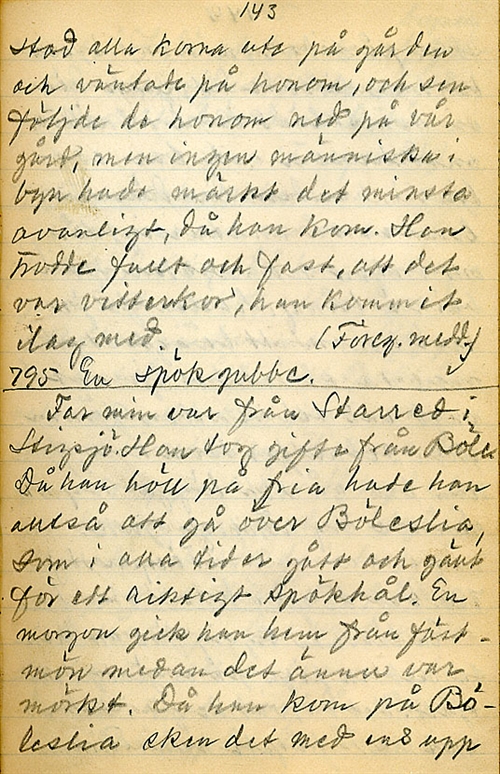 143
stod alla korna ute på gården
och väntade på honom, och sen
följde de honom ned på vår
gård, men ingen människa i
byn hade märkt det minsta
ovanligt, då han kom. Han
trodde fullt och fast, att det
var vitterkor, han kommit
ilag med. (Föreg. medd.)
795 En spökgubbe.
Far min var från Starred i
Stigsjö. Han tog gifte från Böle.
Då han höll på fria hade han
autså att gå över Böleslia,
som i alla tider gått och gänt
för ett riktigt spökhål. En
morgon gick han hem från fäst-
mön medan det ännu var
mörkt. Då han kom på Bö-
leslia sken det med ens upp